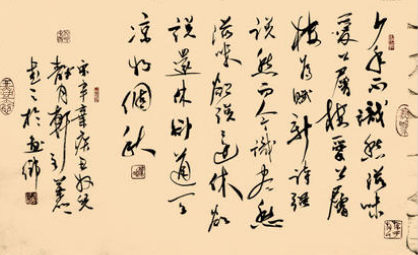 少年不識愁滋味
愛上層樓愛上層
樓為賦新詞強
說愁而今識盡愁
滋味欲說還休欲
說還休卻道天
涼好個秋
宋辛棄疾丑奴兒